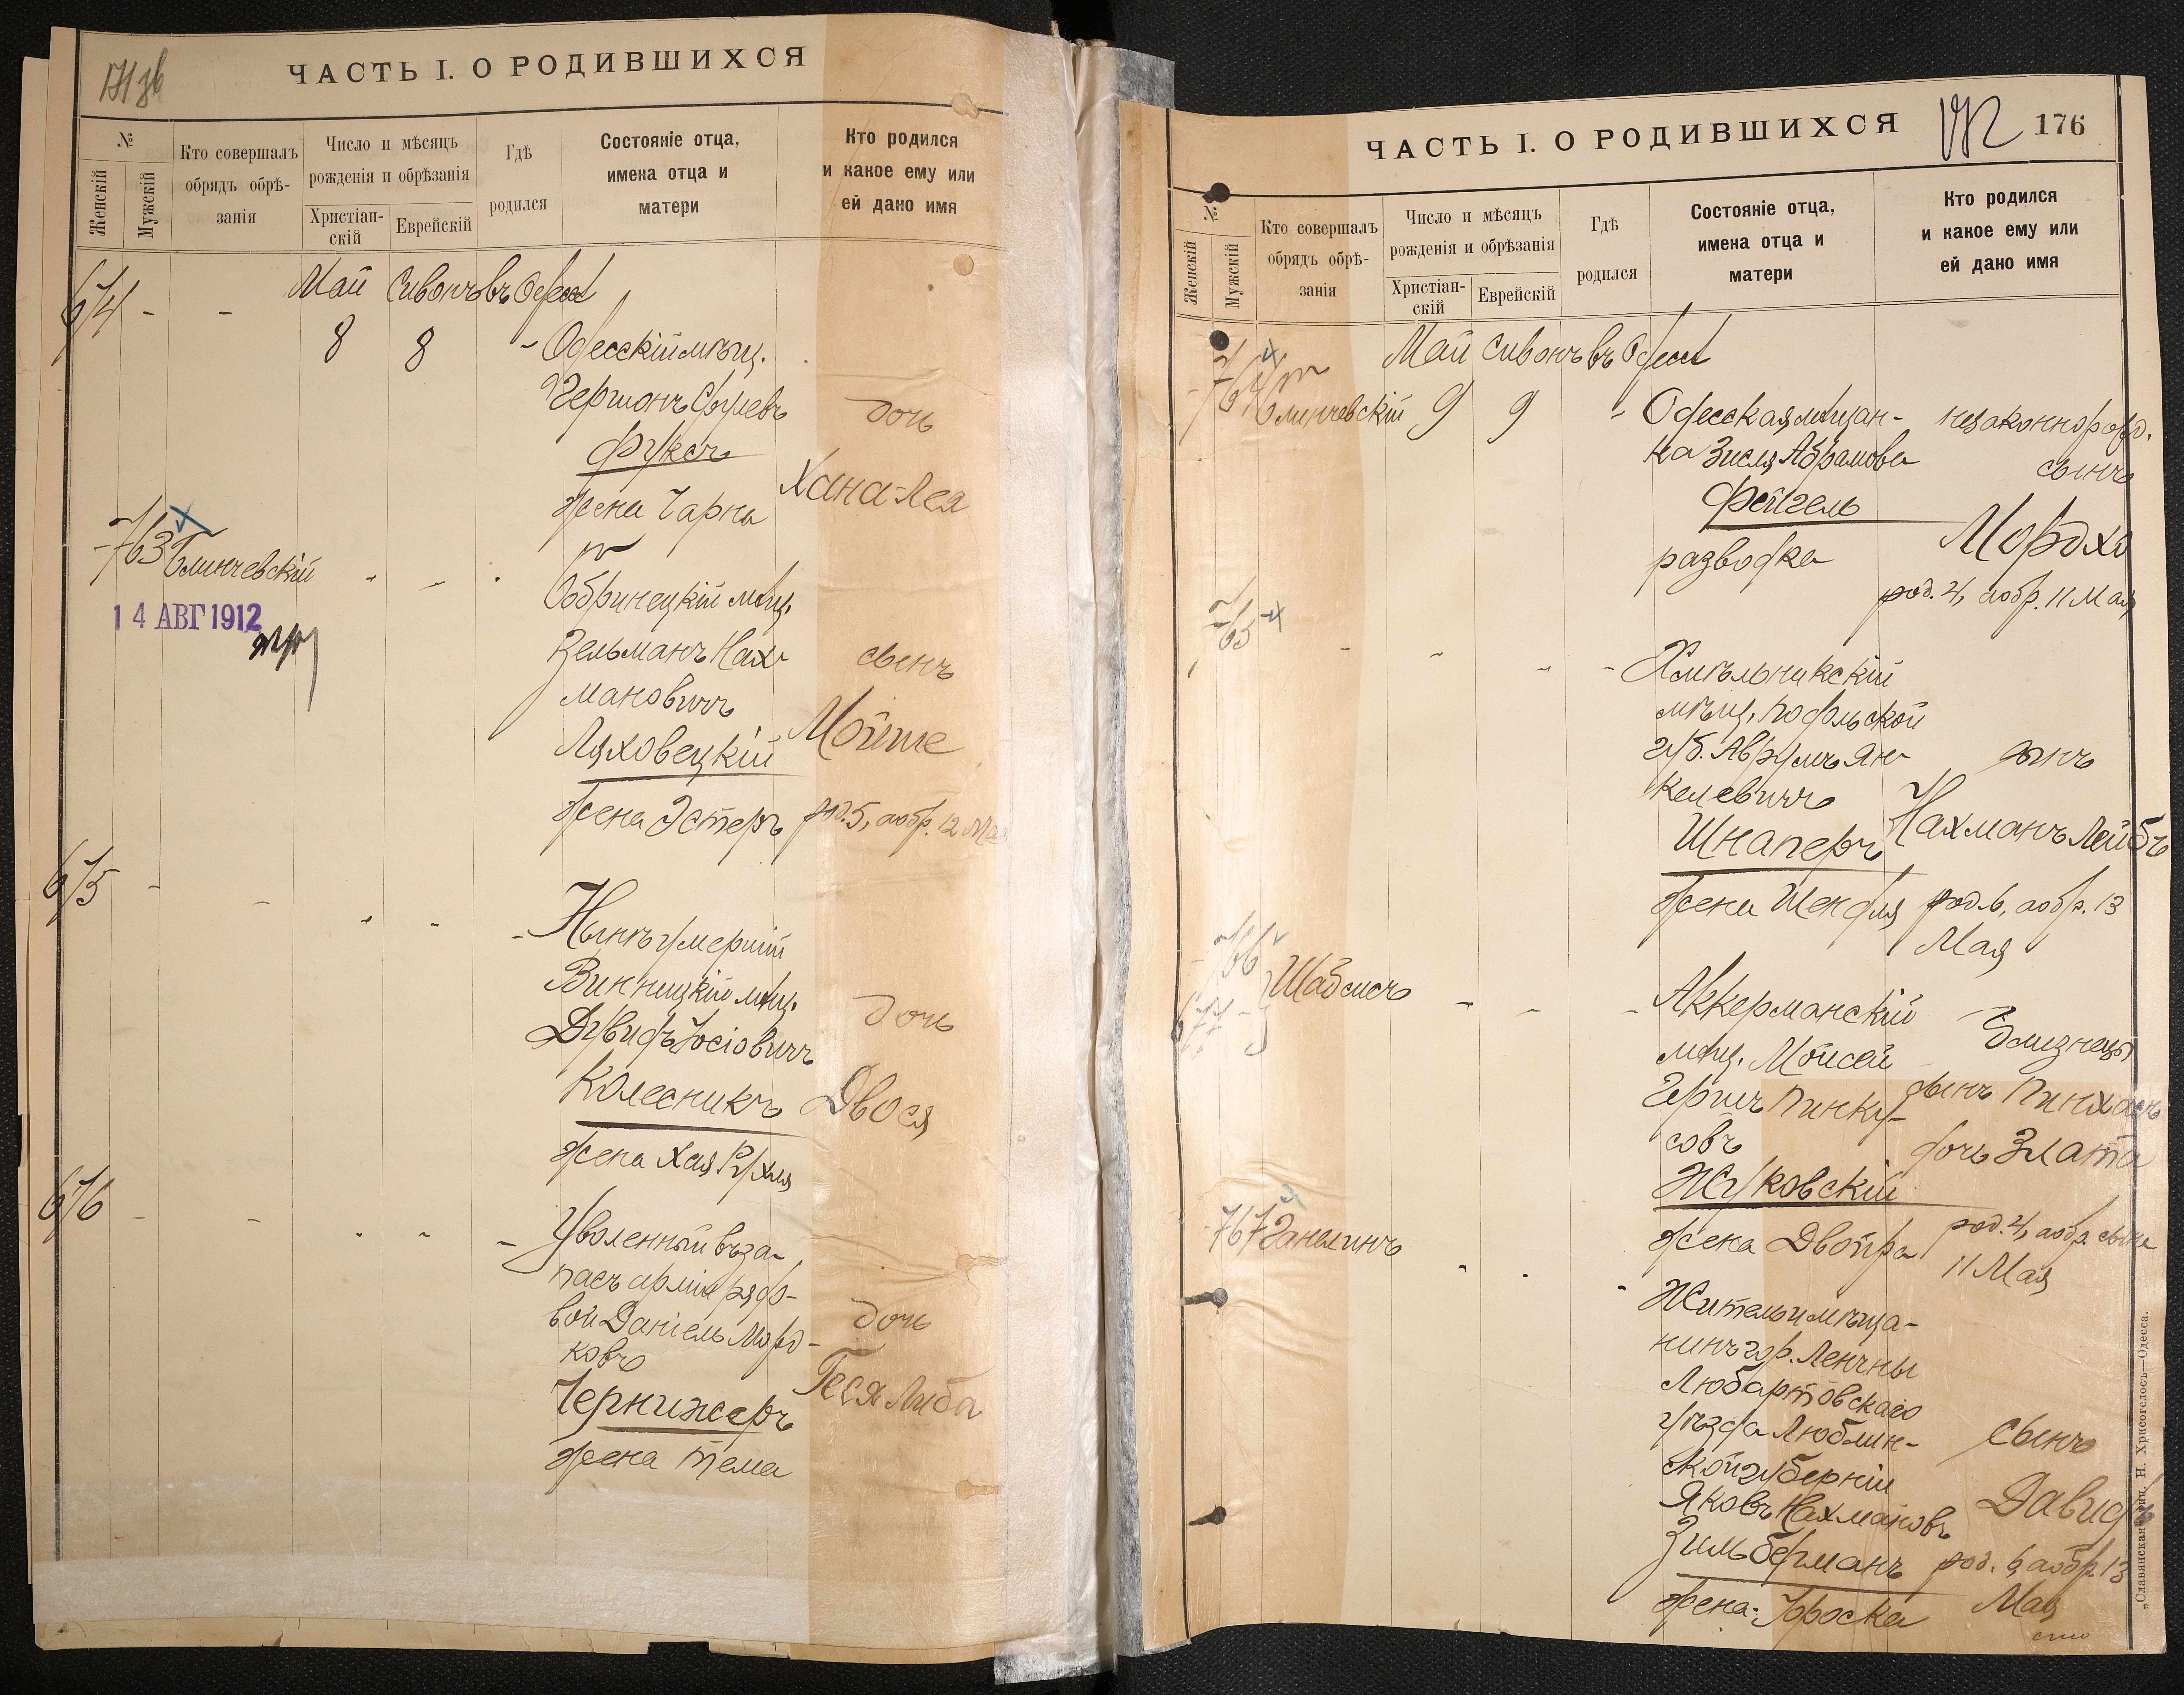 ЧАСТЬ I. О РОДИВШИХСЯ
№
Женскій
Мужскій
Кто совершалъ
обрядъ обрѣ-
занія
Число и мѣсяцъ
рожденія и обрѣзанія
Христіан-
скій
Еврейскій
Гдѣ
родился
Состояніе отца,
имена отца и
матери
Кто родился
и какое ему или
ей дано имя
674 - -
Май Сивонъ въ Одессѣ
8 8 - Одесскій мѣщ.
Гершонъ Сруlевъ
Фуксъ
жена Чарна
дочь
Хана-Лея
763 Блинчевскій
14 АВГ 1912
Бобринецкій мѣщ.
Зельманъ Нах-
мановичъ
Ляховецкій
жена Эстеръ
сынъ
Мойше
род. 5, а обр. 12 Мая
675 - -
Нынѣ умершій
Винницкій мѣщ.
Дувидъ Іосіовичъ
Колесникъ
жена Хая Рухля
дочь
Двося
676 - -
Уволенный въ за-
пасъ арміи рядо-
вой Даніель Морд-
ковъ
Чернижеръ
жена Тема
дочь
Геся Либа
ЧАСТЬ I. О РОДИВШИХСЯ
172
176
№
Женскій
Мужскій
Кто совершалъ
обрядъ обрѣ-
занія
Число и мѣсяцъ
рожденія и обрѣзанія
Христіан-
скій
Еврейскій
Гдѣ
родился
Состояніе отца,
имена отца и
матери
Кто родился
и какое ему или
ей дано имя
Май Сивонъ въ Одессѣ
764 Блинчевскій 9 9 -
Одесская мѣщан-
ка Зисля Абрамова
Фейгель
разводка
незаконнорожд.
сынъ
Мордхо
род. 4, а обр. 11 Мая
765
Хмѣльникскій
мѣщ. Подольской
губ. Аврумъ Ян-
келевичъ
Шнаперъ
жена Шендля
сынъ
Нахманъ Лейбъ
род. 6, а обр. 13
Мая
766
677 -
Шабсисъ
Аккерманскій
мѣщ. Мойсей
Гершъ Пинку-
совъ
Жуковскій
жена Двойра
Близнецы
сынъ Пинхасъ
дочь Злата
род. 4, а обр. сына
11 Мая
767 Ганелинъ
Житель и мѣща-
нинъ гор. Ленчны
Любартовскаго
уѣзда Люблин-
ской губерніи
Яковъ Нахмановъ
Зильберманъ
жена: Юроска
сынъ
Давидъ
род. 6, а обр. 13
Мая
„Славянская" тип. Н. Хрисогелосъ—Одесса.